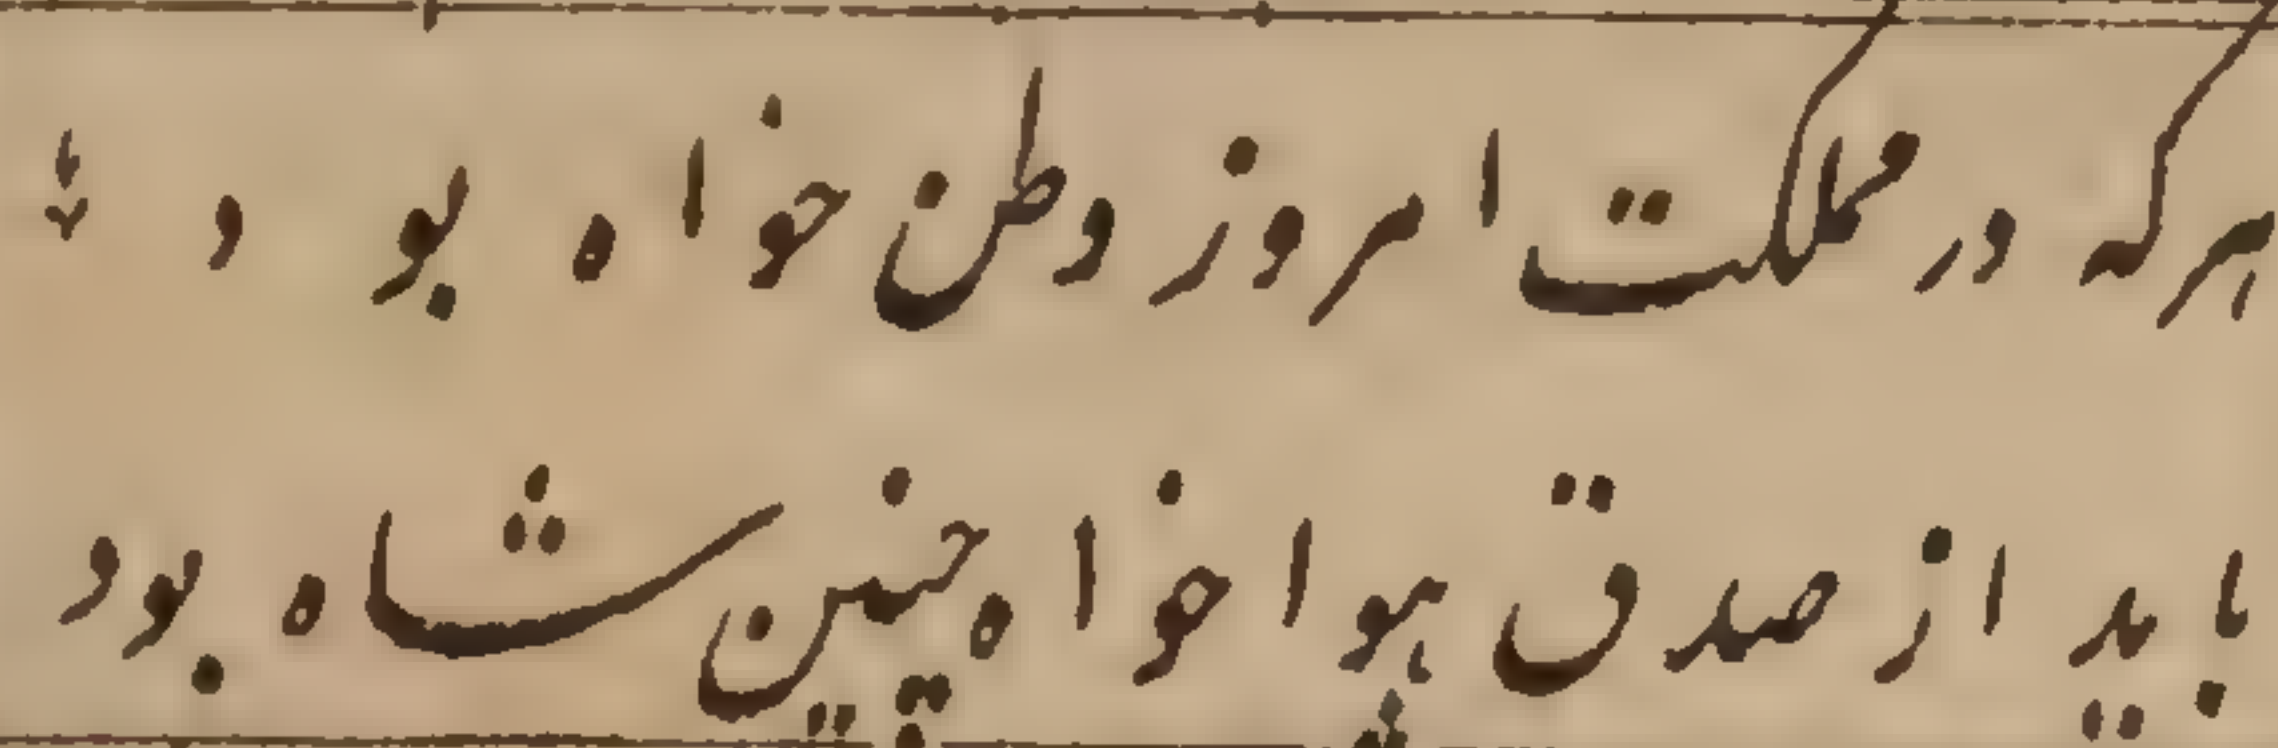 هرکه در مملکت امروز وطن خواه بود
باید از صدق هواخواه چنین شاه بود